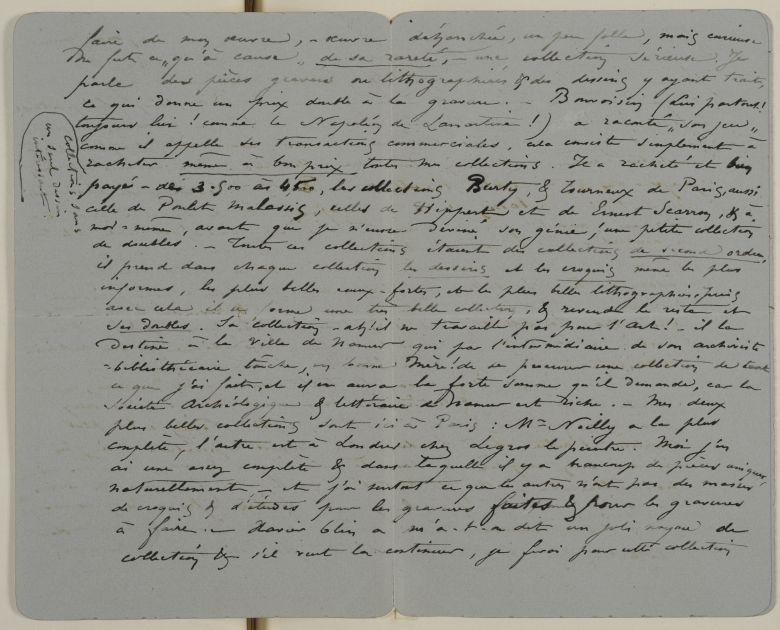 faire de mon œuvre, - œuvre dehanchée, un peu folle, mais curieuse
ne fut ce qu'à cause de sa rareté, - une collection sérieuse. Je
parle des pièces gravées ou lithographiées & des dessins y ayant trait,
ce qui donne un prix double à la gravure. - Bonvoisin (lui partout!
toujours lui! comme le Napoléon de Lamartine!) a raconté "son jeu"
comme il appelle ses transactions commerciales. cela consiste simplement à
racheter même à bon prix toutes mes collections. Il a racheté et bien
payés - des 3.500 às 4500, les collections Burty, & Tourneux de Paris, aussi
celle de Poulet Malassis, celles de Hippert et de Ernest Scarron, & à
moi-même, avant que je n'eusse deviné son génie! une petite collection
de doubles. - Toutes ces collections étaient des collections de second ordre,
il prend dans chaque collection les dessins et les croquis même les plus
informes, les plus belles eaux-fortes, & les plus belles lithographies, puis
avec cela il se forme une très belle collection, & revend le reste et
ses doubles. Sa collection - ah! il ne travaille pas pour l'Art! - il la
destine à la ville de Namur qui par l'intermédiaire de son archiviste
-bibliothécaire, tâche, en bonne Mère! de se procurer une collection de tout
ce que j'ai fait, et il en aura la forte somme qu'il demande, car la
Société Archéologique & littéraire de Namur est riche. - Mes deux
plus belles collections sont ici à Paris: Mr Noilly a la plus
complète, l'autre est à Londres chez Legros le peintre. Moi j'en
ai une assez complète & dans laquelle il y a beaucoup de pièces uniques,
naturellement - et j'ai surtout ce que les autres n'ont pas des masses
de croquis & d'études pour les gravures faites & pour les gravures
à faire. - a m'a-t-on dit un joli noyau de
collection & s'il veut la continuer, je ferai pour cette collection
Collections sans
un seul dessin
intéressant